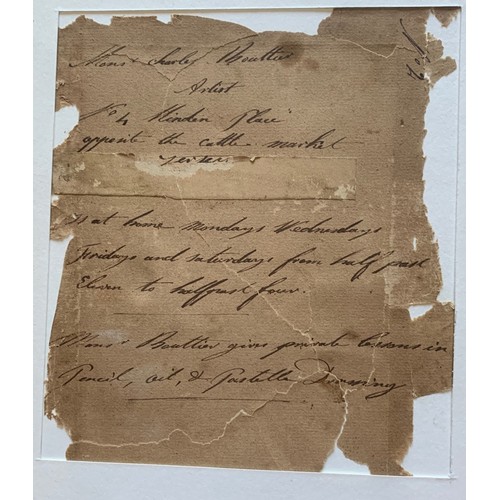 Mons. Charles Bouttier
Artist
No 4 Minden Place
opposite the cattle market
Jersey
is at home Mondays Wednesdays
Fridays and Saturdays from half past
Eleven to half past four.
Mons. Bouttier gives private lessons in
Pencil, oil, & Pastelle Drawing